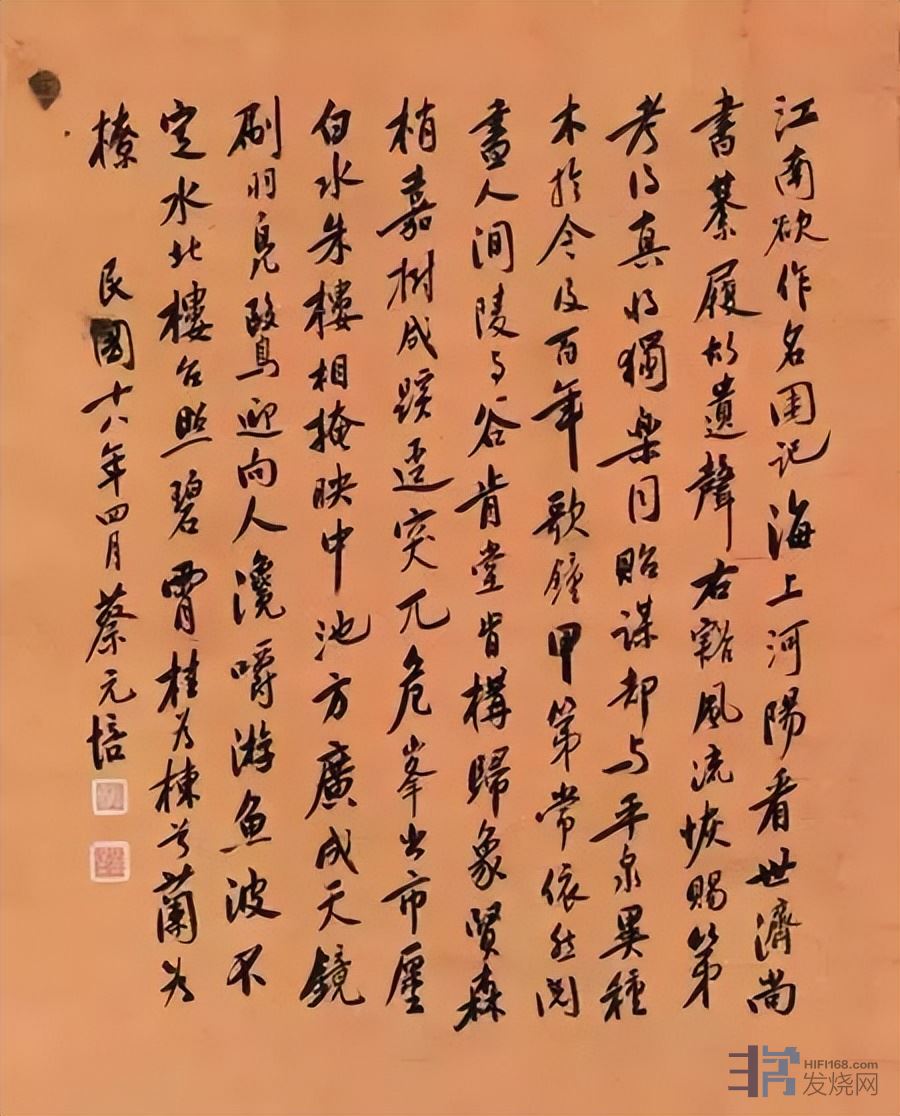 江南欲作名園記海上河陽看世濟尚
書綦履故遺聲右豁風流恢賜第
考得真將獨樂同貽謀却与平泉異種
木於今及百年歌鐘甲第常依然閱
盡人間陵与谷肯堂肯構歸象賢森
梢嘉樹成蹊逕突兀危峯出市廛
白水朱樓相掩映中池方廣成天鏡
刷羽鳧鷖迎向人瀺嚼游魚波不
定水北樓台照碧霄桂為棟兮蘭為
橑 民國十八年四月蔡元培
HIFI168.com
发烧网